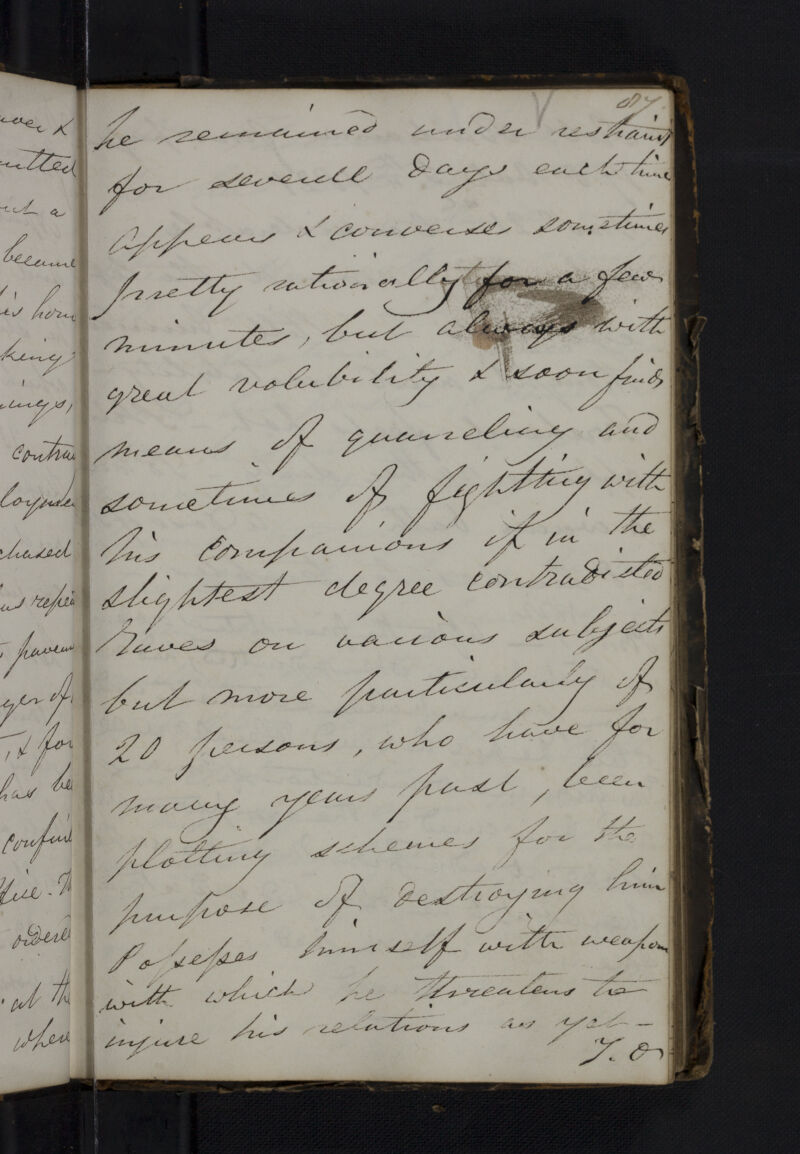 87.
he remained under restraint
for severell days each time
appears & converses sometimes
pretty rationally for a few
minutes, but always with
great volubility & soon finds
means of quarreling and
sometimes of fightting with
his companions if in the
slightest degree contradicted
Raves on various subjects
but more particularly of
20 persons, who have for
many years past, been
plotting schemes for the
purpose of destroying him
Possesses himself with weapons
with which he threatens to
injure his relations as yet -
T. O
over &
became
his home
contra
chased
has be
ordered
at the
where